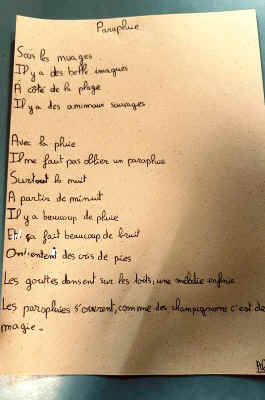 Parapluie
Sous les nuages.
Il y a des belle imagues
À côté de la plage
Il y a des animaux sauvages
Avec la pluie
Il me faut pas oblier un parapluie
Surtout la nuit
A partir de minuit
Il y a beaucoup de pluie
Et ça fait beaucoup de bruit
On entent des cris de pies
Les gouttes dansent sur les toits, une mélodie infinie
Les parapluies s'ouvrent, comme des champignons c'est de la
magie.